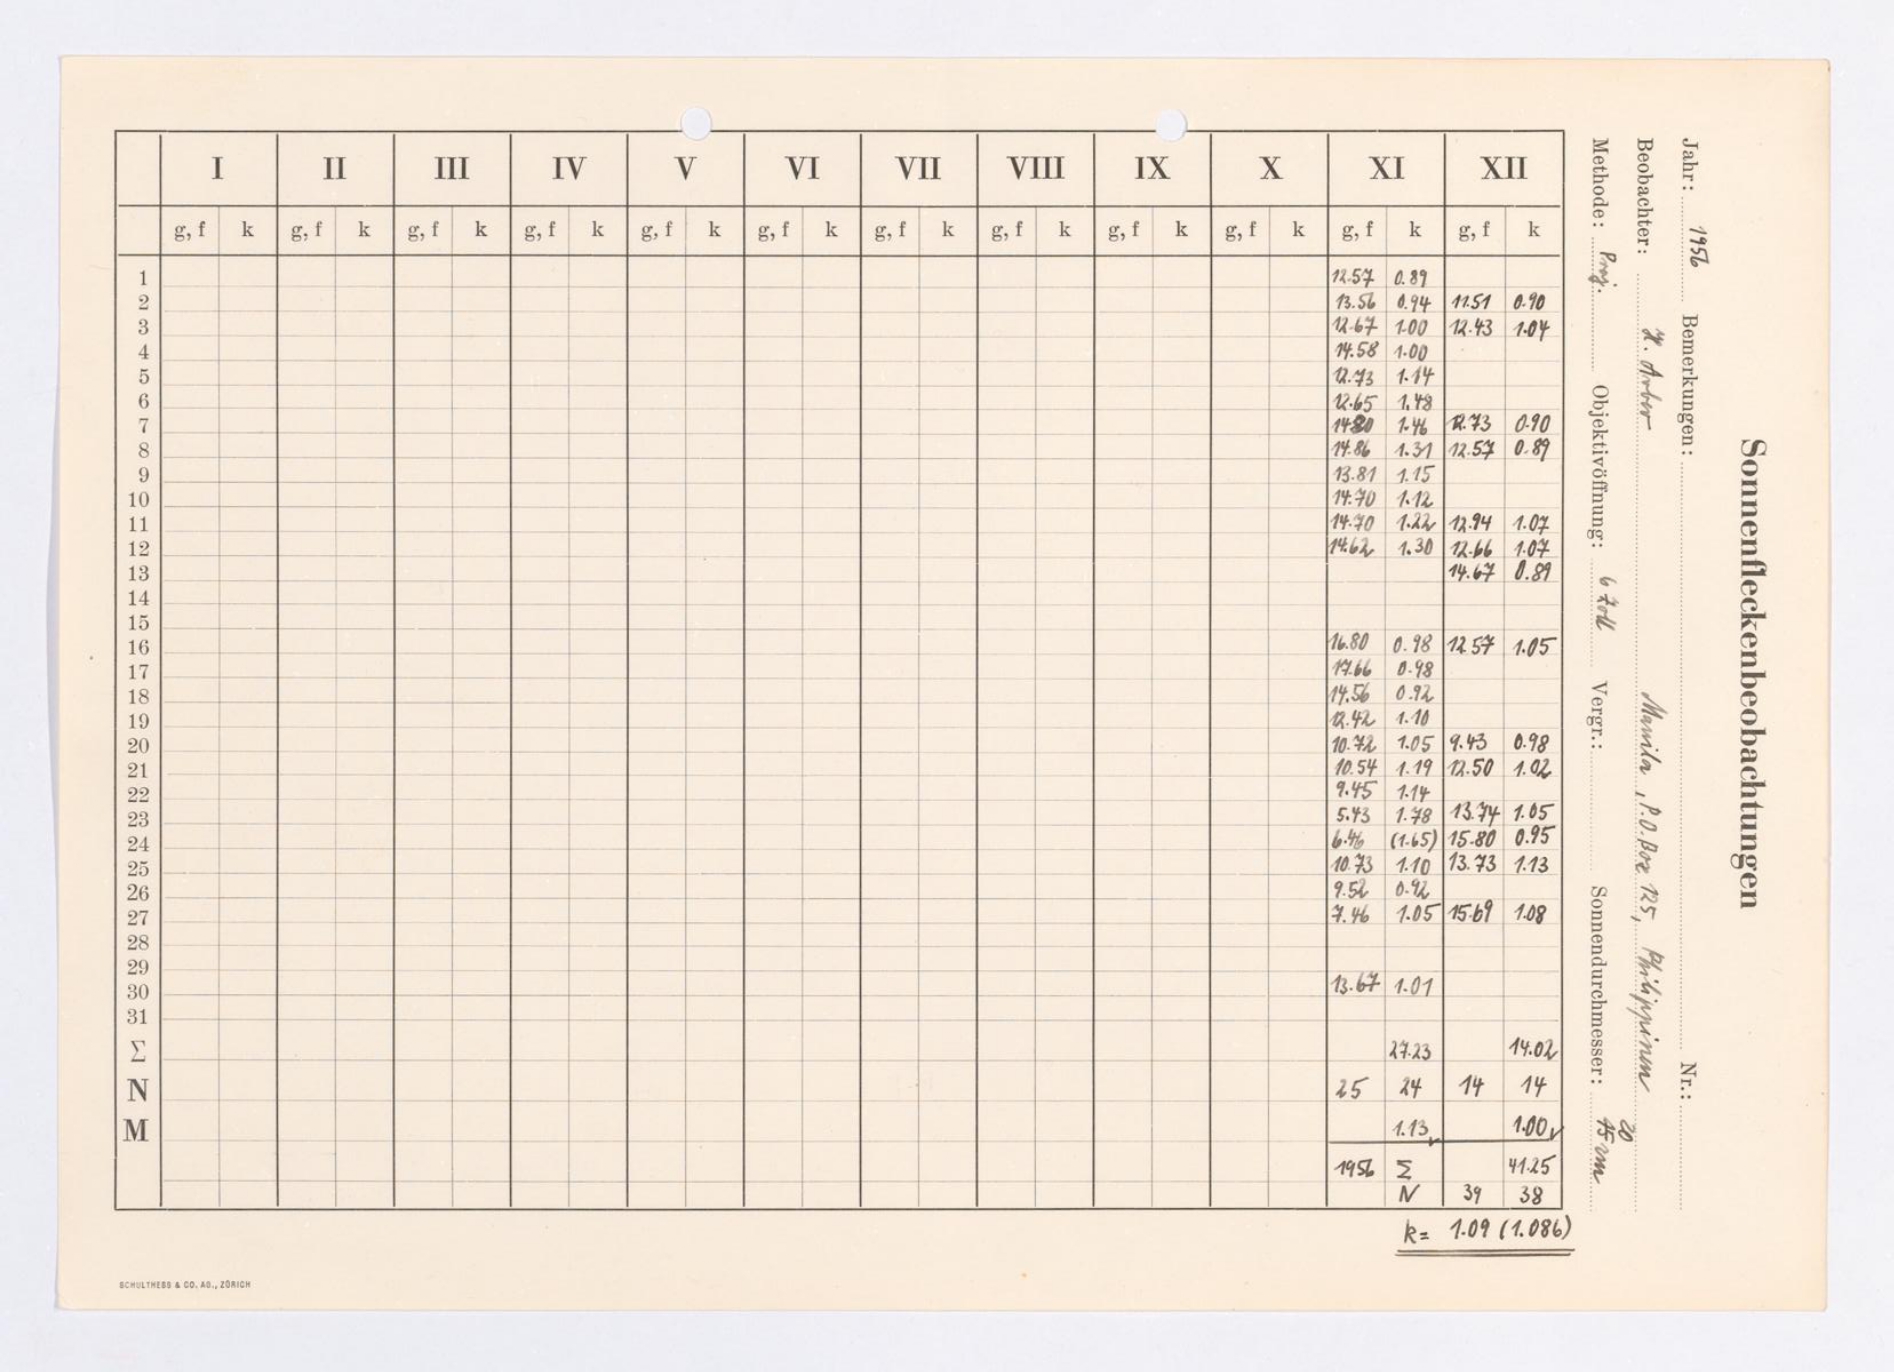 Sonnenfleckenbeobachtungen
Jahr: 1956 Bemerkungen: Nr.:
Beobachter: H. Arber Manila, P.O.Box 125, Philippinen
Methode: Proj. Objektivöffnung: 6 Zoll Vergr.: Sonnendurchmesser: 20 15 cm
I II III IV V VI VII VIII IX X XI XII
g, f k g, f k g, f k g, f k g, f k g, f k g, f k g, f k g, f k g, f k g, f k g, f k
1 12.57 0.89
2 13.56 0.94 11.51 0.90
3 12.67 1.00 12.43 1.04
4 14.58 1.00
5 12.73 1.14
6 12.65 1.48
7 14.80 1.46 12.73 0.90
8 14.86 1.31 12.57 0.89
9 13.81 1.15
10 14.70 1.12
11 14.70 1.22 12.94 1.07
12 14.62 1.30 12.66 1.07
13 14.67 0.89
14
15
16 16.80 0.98 12.57 1.05
17 17.66 0.98
18 14.56 0.92
19 12.42 1.10
20 10.72 1.05 9.43 0.98
21 10.54 1.19 12.50 1.02
22 9.45 1.14
23 5.43 1.78 13.74 1.05
24 6.46 (1.65) 15.80 0.95
25 10.73 1.10 13.73 1.13
26 9.52 0.92
27 7.46 1.05 15.69 1.08
28
29
30 13.67 1.01
31
Σ 27.23 14.02
N 25 24 14 14
M 1.13 1.00
1956 Σ 41.25
N 39 38
k= 1.09 (1.086)
SCHULTHESS & CO. AG., ZÜRICH